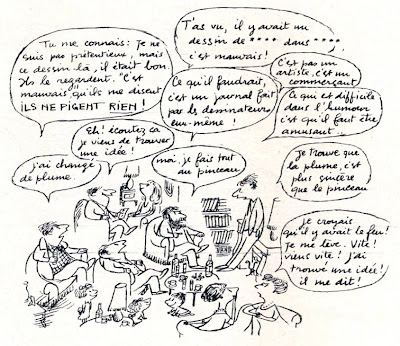 Tu me connais : Je ne
suis pas prétentieux, mais
ce dessin-là, il était bon
Ils le regardent. "C'est
mauvais" qu'ils me disent
ILS NE PIGENT RIEN !
T'as vu, il y avait un
dessin de **** dans ****,
c'est mauvais !
C'est pas un
artiste, c'est un
commerçant
Ce qu'il faudrait,
c'est un journal fait
par les dessinateurs
eux-même !
Ce qui est difficile
dans l'humour
c'est qu'il faut être
amusant.
Eh ! écoutez ça
je viens de trouver
une idée !
j'ai changé
de plume.
moi, je fais tout
au pinceau
Je trouve que
la plume, c'est
plus sincère
que le pinceau
Je croyais
qu'il y avait le feu !
Je me lève. Vite !
viens vite ! j'ai
trouvé une idée !
il me dit !